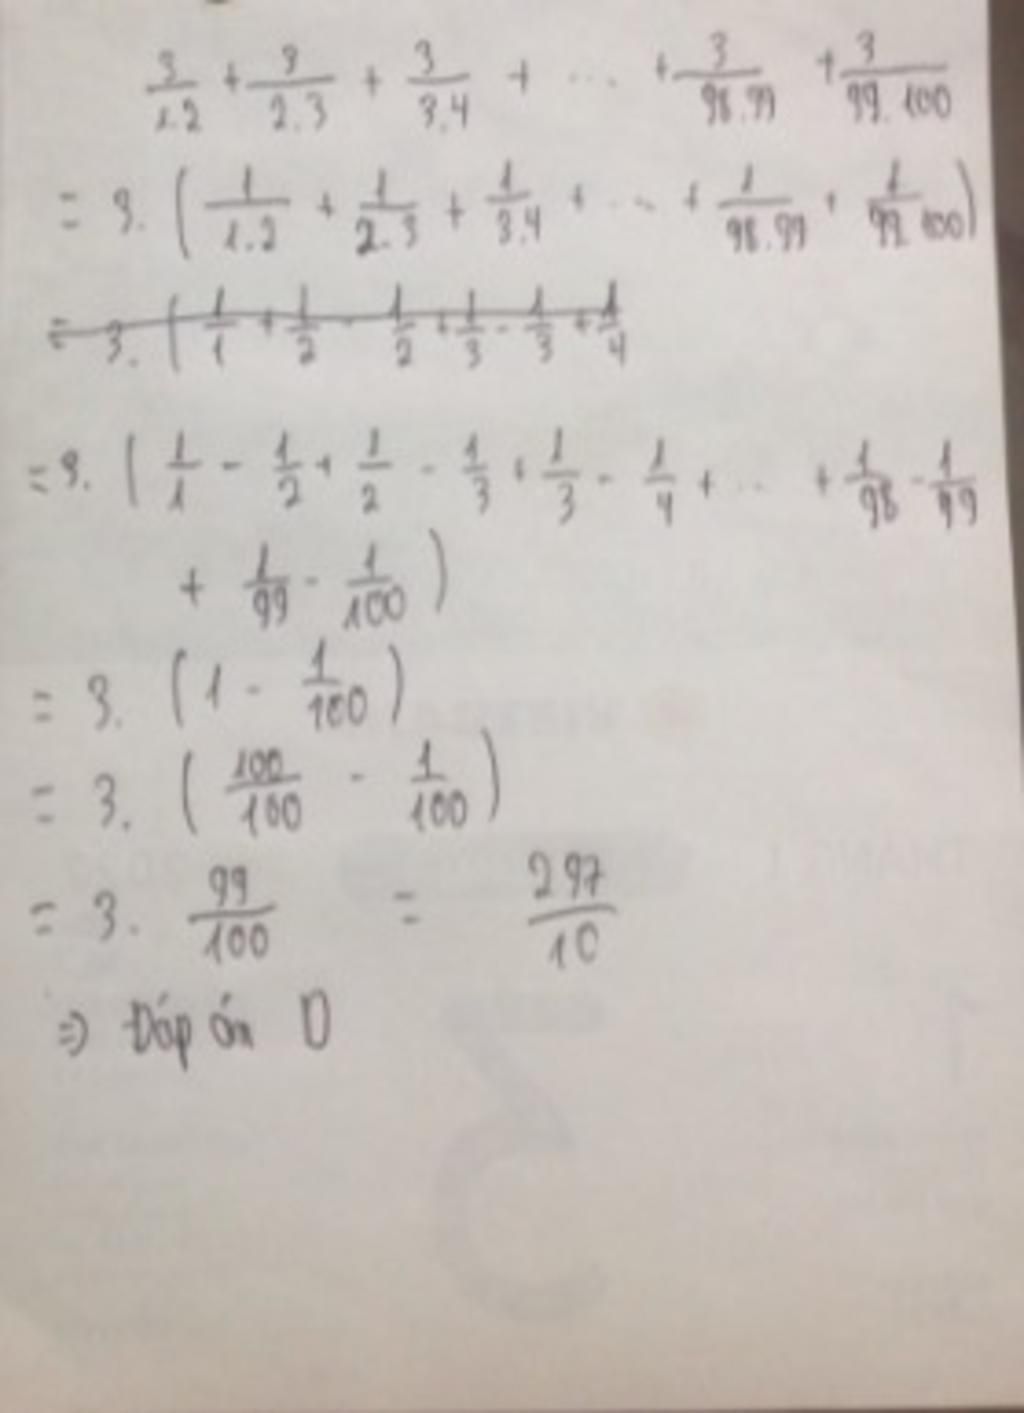 3/1.2 + 3/2.3 + 3/3.4 + ... + 3/98.99 + 3/99.100
= 3. ( 1/1.2 + 1/2.3 + 1/3.4 + ... + 1/98.99 + 1/99.100 )
= 3. ( 1/1 + 1/2 - 1/2 + 1/3 - 1/3 + 1/4
= 3. ( 1/1 - 1/2 + 1/2 - 1/3 + 1/3 - 1/4 + ... + 1/98 - 1/99
+ 1/99 - 1/100 )
= 3. ( 1 - 1/100 )
= 3. ( 100/100 - 1/100 )
= 3. 99/100 = 297/10
=> Đáp án D